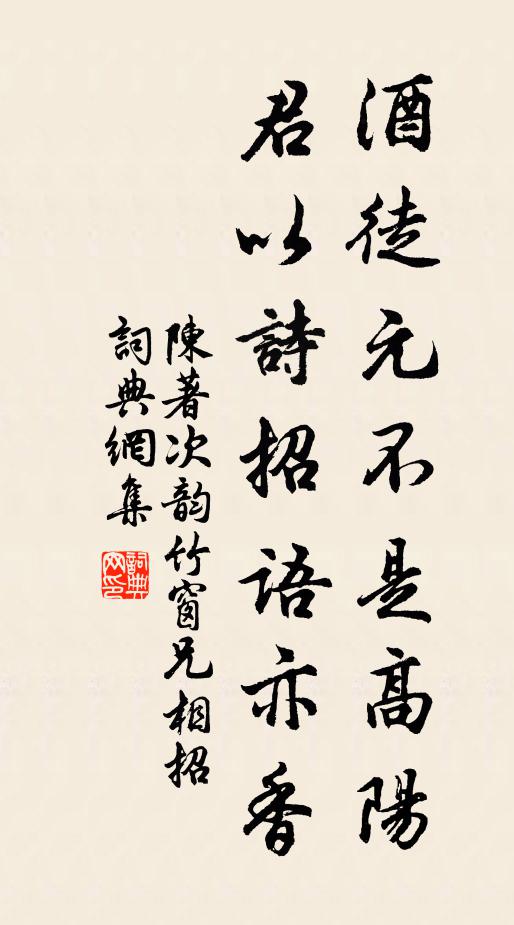 酒徒元不是高陽
君以詩招語亦香
陳著次韵竹窗兄相招
詞典網集
詞典網印